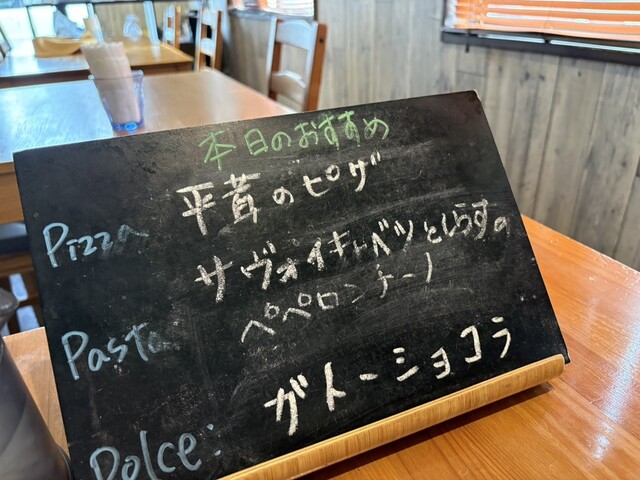 本日のおすすめ
Pizza 平茸のピザ
Pasta サヴォイキャベツとしらすの
ペペロンチーノ
Dolce: ガトーショコラ